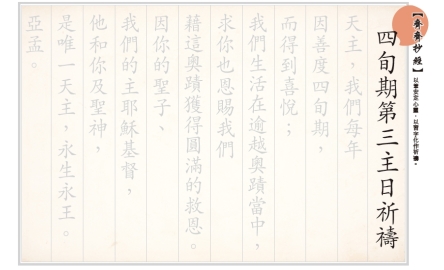 【齊齊抄經】
以靈安定心靈，以習字化作祈禱。
四旬期第三主日祈禱
天主，我們每年
因善度四旬期，
而得到喜悅；
我們生活在逾越奧蹟當中，
求你也恩賜我們
藉這奧蹟獲得圓滿的救恩。
因你的聖子、
我們的主耶穌基督，
他和你及聖神，
是唯一天主，永生永王。
亞孟。